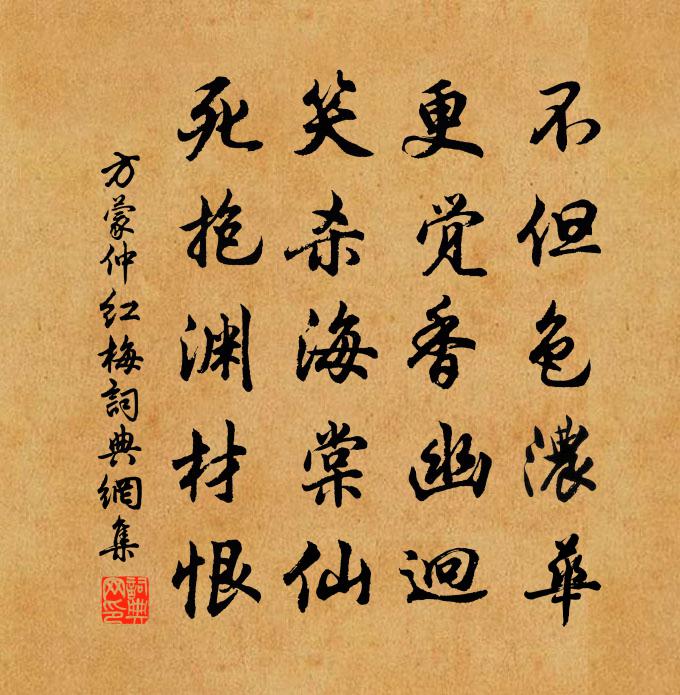 不但色濃華
更覺香幽迥
笑杀海棠仙
死抱渊材恨
方蒙仲红梅詞典網集
詞典網印